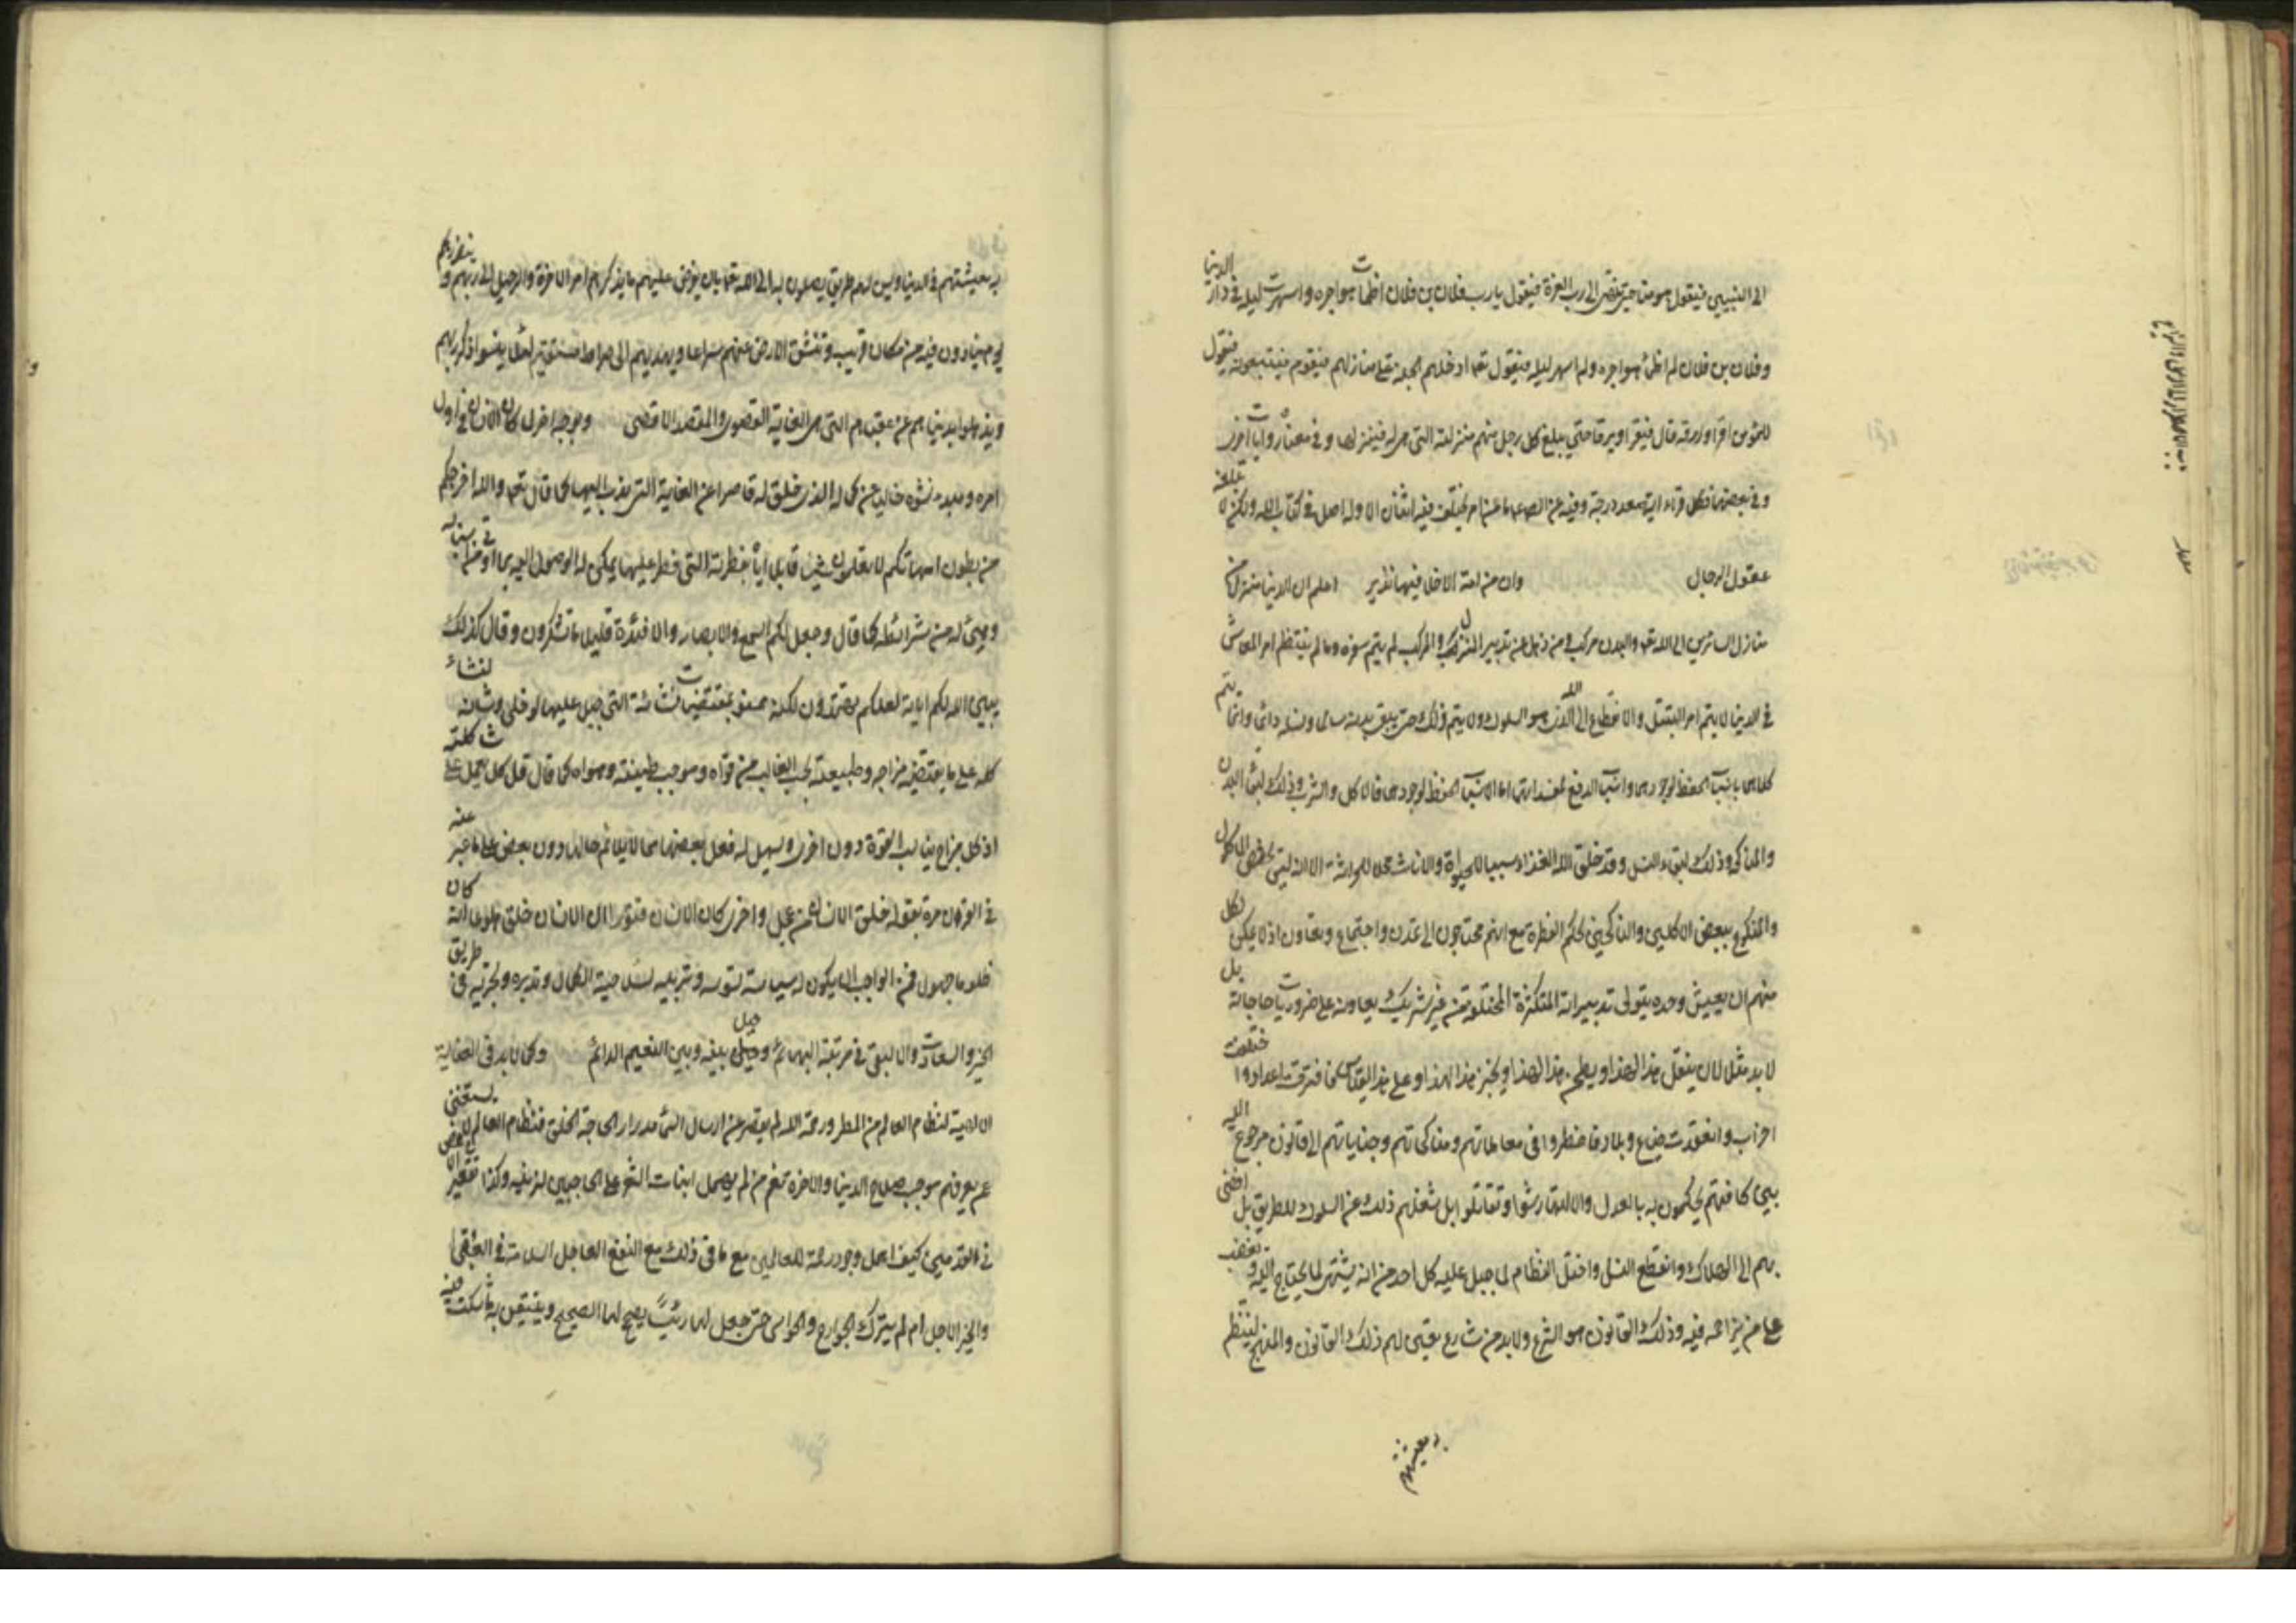 الى النبيين فيقول هو منا حتى ينتهى الى رب العزة فيقول يا رب فلان بن فلان اظمات هواجره واسهرت ليله فى دار الدنيا
وفلان بن فلان لم اظمئ هواجره ولم اسهر ليله فيقول تعا ادخلهم الجنة على منازلهم فيقوم فيتبعونه فيقول
للمؤمن اقرا وارقه قال فيقرا ويرقا حتى يبلغ كل رجل منهم منزلته التى هى له فينزلها وفى معناه روايات اخرى
وفى بعضها فكل قراءة اية صعد درجة وفيه عن الصم ما من امر يختلف فيه اثنان الا وله اصل فى كتاب الله ولكن لا تبلغه
عقول الرجال وان من امة الا خلا فيها نذير اعلم ان الدنيا منزل من
منازل السائرين الى الله تعا والبدن مركب ومن ذهل عن تدبير المنزل والمركب لم يتم سفره وما لم ينتظم امر المعاش
فى الدنيا لا يتم امر التبتل والانقطاع الى الله الذى هو السلوك ولا يتم ذلك حتى يبقى بدنه سالما ونسله دائما وانما يتم
كلاهما باسباب الحفظ لوجودهما واسباب الدفع لمفسداتهما اما اسباب الحفظ لوجودهما فالاكل والشرب وذلك لبقاء البدن
والمناكحة وذلك لبقاء النسل وقد خلق الله الغذاء سببا للحيوة والاناث محلا للحراثة الا انه ليس يختص الماكول
والمنكوح ببعض الاكلين والناكحين بحكم الفطرة مع انهم محتاجون الى تمدن واجتماع وتعاون اذ لا يمكن لكل
منهم ان يعيش وحده يتولى تدبيراته المتكثرة المختلفة من غير شريك يعاونه على ضروريات حاجاته بل
لا بد مثلا لان ينقل هذا لهذا ويطحن هذا لهذا ويخبز هذا لهذا وعلى هذا القياس فافترقت اعداد واختلفت
احزاب وانعقدت ضياع وبلاد فاضطروا فى معاملاتهم ومناكحاتهم وجناياتهم الى قانون مرجوع اليه
بين كافتهم يحكمون به بالعدل والا لتهارشوا وتقاتلوا بل شغلهم ذلك عن السلوك للطريق بل افضى
بهم الى الهلاك وانقطع النسل واختل النظام لما جبل عليه كل احد من انه يشتهى لما يحتاج اليه ويغضب
على من يزاحمه فيه وذلك القانون هو الشرع ولا بد من شارع يعين لهم ذلك القانون والمنهج لينتظم
به معيشتهم
به معيشتهم فى الدنيا ويسن لهم طريق يصلون به الى الله تعا بان يفرض عليهم ما يذكرهم امر الاخرة والرحيل الى ربهم وينذرهم
يوم ينادون فيه من مكان قريب وتنشق الارض عنهم سراعا ويهديهم الى صراط مستقيم لئلا ينسوا ذكر ربهم
ويذهلوا بدنياهم عن عقباهم التى هى الغاية القصوى والمقصد الاقصى وبوجه اخر لما كان الانسان فى اول
امره ومبدء نشوه خاليا من كماله الذى خلق له قاصرا عن الغاية التى يندب اليها كما قال تعا والله اخرجكم
من بطون امهاتكم لا تعلمون شيئا قابلا اياه بفطرته التى فطر عليها يمكن له الوصول اليه بما اودع فى سنخه
وهيئ له من شرائطه كما قال وجعل لكم السمع والابصار والافئدة قليلا ما تشكرون وقال كذلك
يبين الله لكم اياته لعلكم تهتدون لكنه ممنو بمقتضيات نشأته التى جبل عليها لو خلى وشانه لنشاء
كله على ما يقتضيه مزاجه وطبيعته بحسب الغالب من قواه وموجب طينته وهواه كما قال قل كل يعمل على شاكلته
اذ كل مزاج يناسب القوة دون اخرى ويسهل له فعل بعضها مما لا يلائم حاله دون بعض على ما عبر عنه
فى القران مرة بقوله خلق الانسان من عجل واخرى كان الانسان قتورا ان الانسان خلق هلوعا انه كان
ظلوما جهولا فمن الواجب ان يكون له سياسة تسوسه وتربيه لسياحة الكمال وتدبره وتجريه فى طريق
الخير والسعادات والا لبقى فى مرتبة البهائم وحيل بينه وبين النعيم الدائم وكما لا بد فى العناية
الالهية لنظام العالم من المطر ورحمة الله لم يقصر عن ارسال السماء مدرارا لحاجة الخلق فنظام العالم لا يستغنى
عمن يعرفهم موجب صلاح الدنيا والاخرة نعم من لم يهمل انبات الشعر على الحاجبين للزينة وكذا تقعير الاخمص
فى القدمين كيف اهمل وجود رحمة للعالمين مع ما فى ذلك مع النفع العاجل السلامة فى العقبى
والخير الاجل ام لم يترك الجوارح والحواس حتى جعل لها رئيسا يصحح لها الصحيح ويتيقن به ما شكت فيه